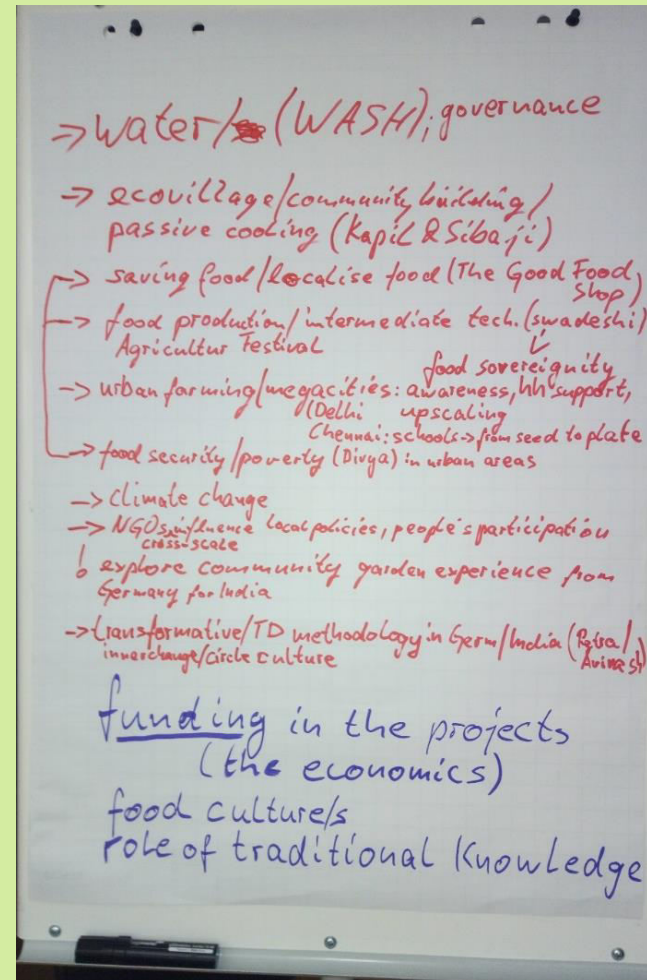 → water/ (WASH); governance
→ ecovillage/community building/
passive cooling (Kapil & Sibaji)
→ saving food/localise food (The Good Food
Shop)
→ food production/intermediate tech. (swadeshi)
Agricultur Festival
food sovereignity
→ urban farming/megacities: awareness, hh support,
(Delhi upscaling
Chennai: schools → from seed to plate
→ food security/poverty (Divya) in urban areas
→ climate change
→ NGOs influence local policies, people's participation
cross-scale
! explore community garden experience from
Germany for India
→ transformative/TD methodology in Germ/India (Petra/
innerchange/circle culture Avinash)
funding in the projects
(the economics)
food culture/s
role of traditional Knowledge